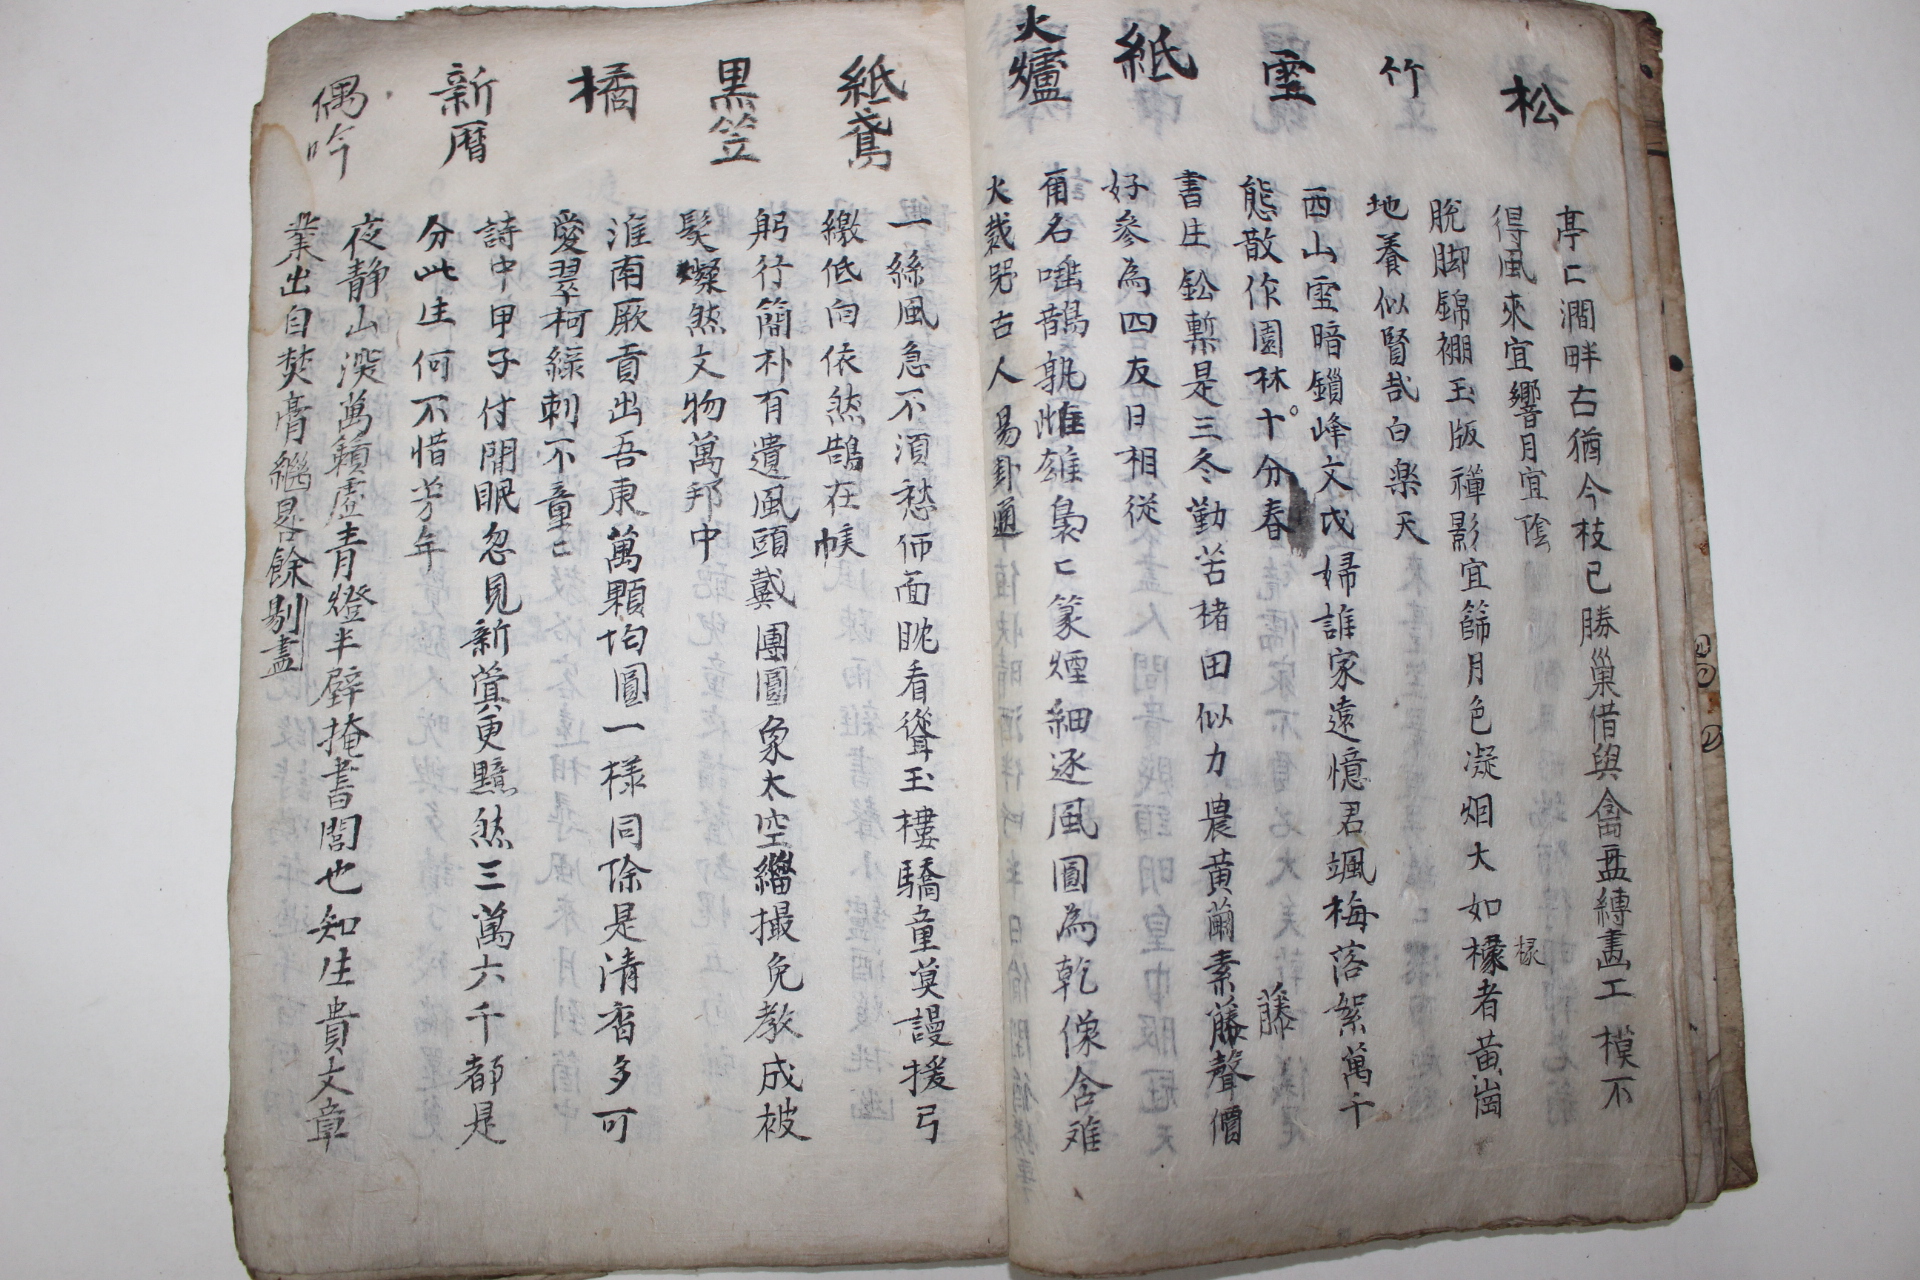 松
亭〻澗畔古猶今枝已勝巢借與禽盂縳畵工模不
得風來宜響月宜陰
竹
脫脚錦裯玉版禪影宜篩月色凝烟大如椽者黃崗
椽
地養似賢哉白樂天
雪
西山雪暗鎖峰文戍婦誰家遠憶君颯梅落絮萬千
態散作園林十分春
紙
書生鉛槧是三冬勤苦楮田似力農黃繭素藤聲價
藤
好參為四友日相從
火爐
甭名鵲孰雌雄梟〻篆煙細逐風圓為乾像含难
火裁器古人易卦通
紙鳶
一絲風急不須愁仰面眈看聳玉樓驕童莫謾援弓
繳低向依然鵠在帿
黒笠
躬行簡朴有遺風頭戴團圓象太空緇撮免教成被
髮燦然文物萬邦中
橘
淮南厥貢出吾東萬顆均圓一様同除是清香多可
愛翠柯綠刺不童〻
新暦
詩中甲子付閒眠忽見新蓂更黯然三萬六千都是
分此生何不惜芳年
偶吟
夜静山深萬籟虛青燈半壁掩書閭也知生貴文章
業出自焚膏繼晷餘剔盡